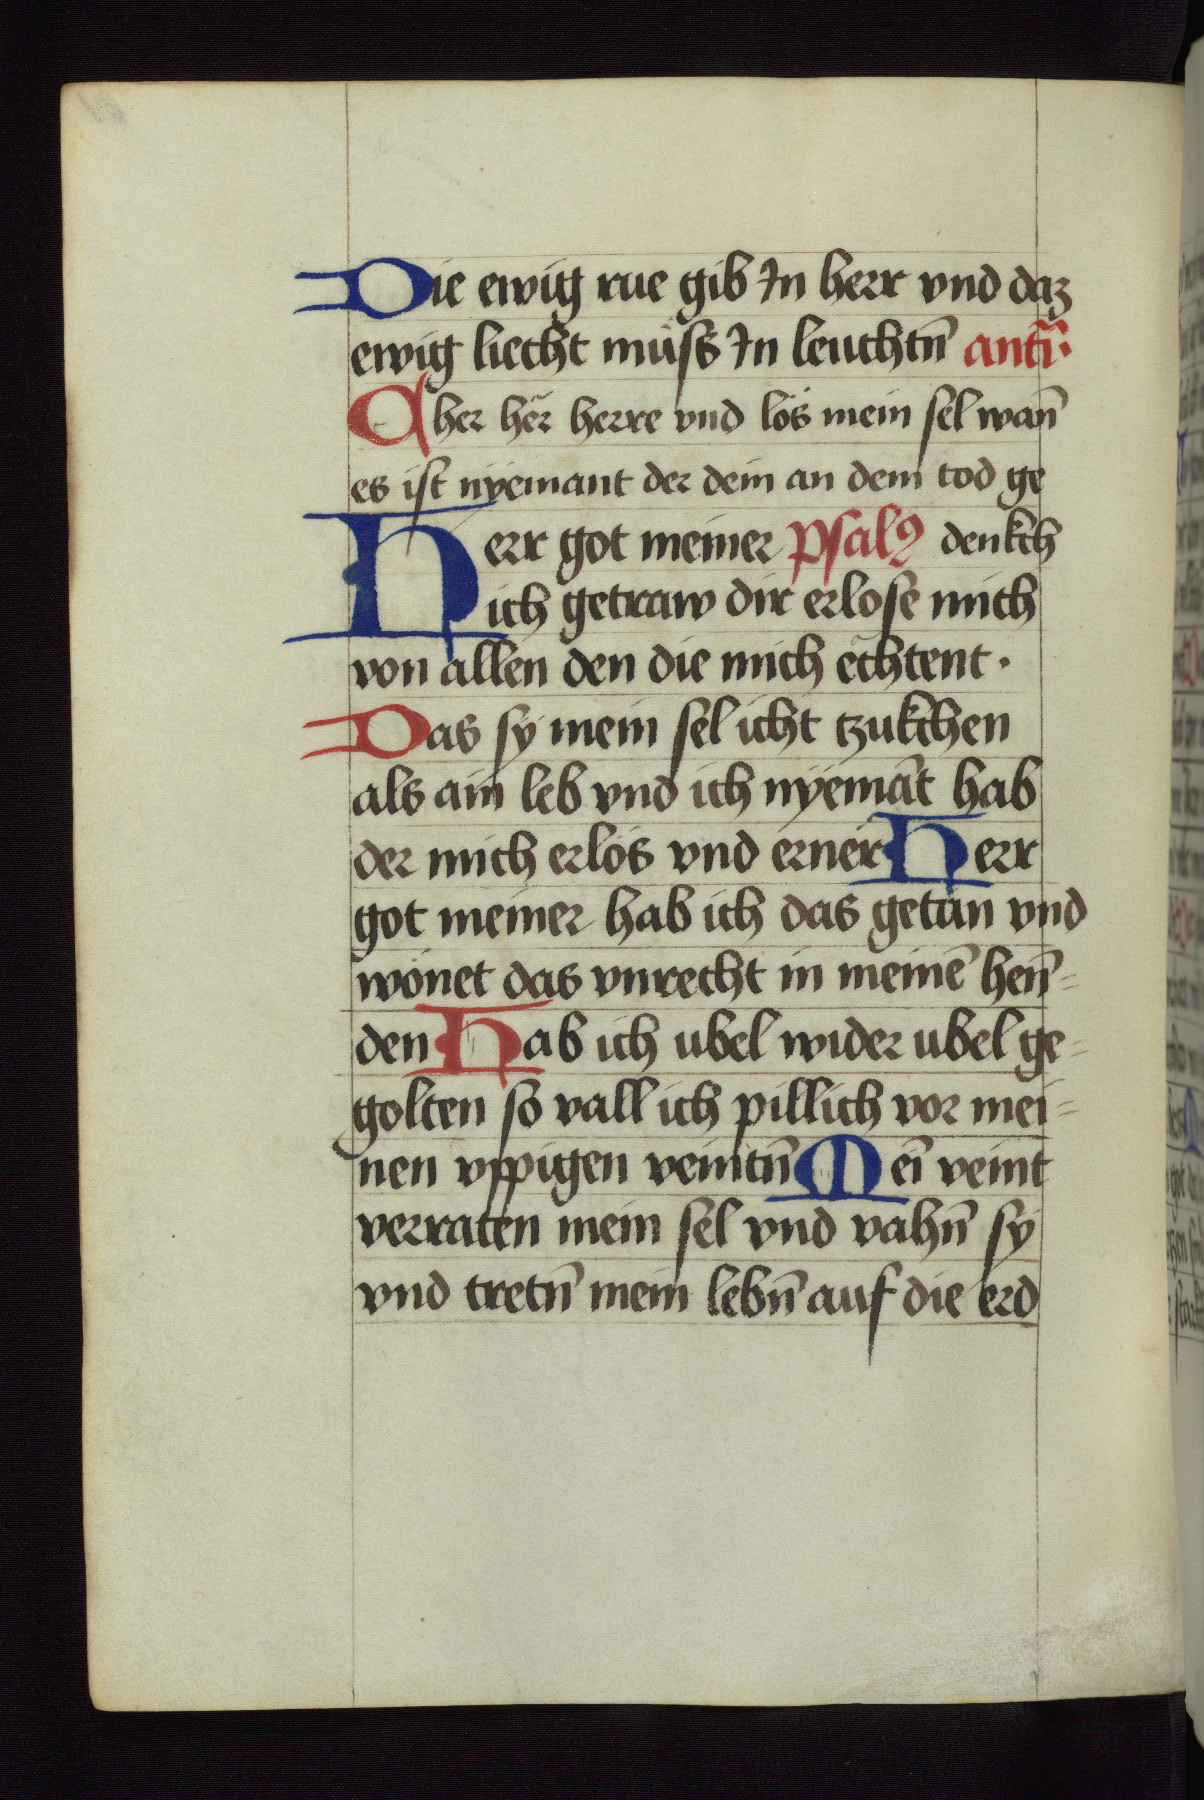 Die ewig rue gib In herr vnd daz
ewig liecht müss In leuchtn̄ antī·
Cher hër herre vnd lös mein sel wan̄
es ist nÿemant der dein an dem tod ge
Herr got meiner psalꝰ denkch
ich getraw dir erlose mich
von allen den die mich ëchtent ·
Das sÿ mein sel icht tzukchen
als ain leb vnd ich nÿemāt hab
der mich erlös vnd erner Herr
got meiner hab ich das getan vnd
wönet das vnrecht in meinē hen̄-
den Hab ich ubel wider ubel ge-
golten so vall ich pillich vor mei-
nen vppigen veintn̄ Mei̅ veint
verraten mein sel vnd vahn̄ sÿ
vnd tretn̄ mein lebn̄ auf die erd